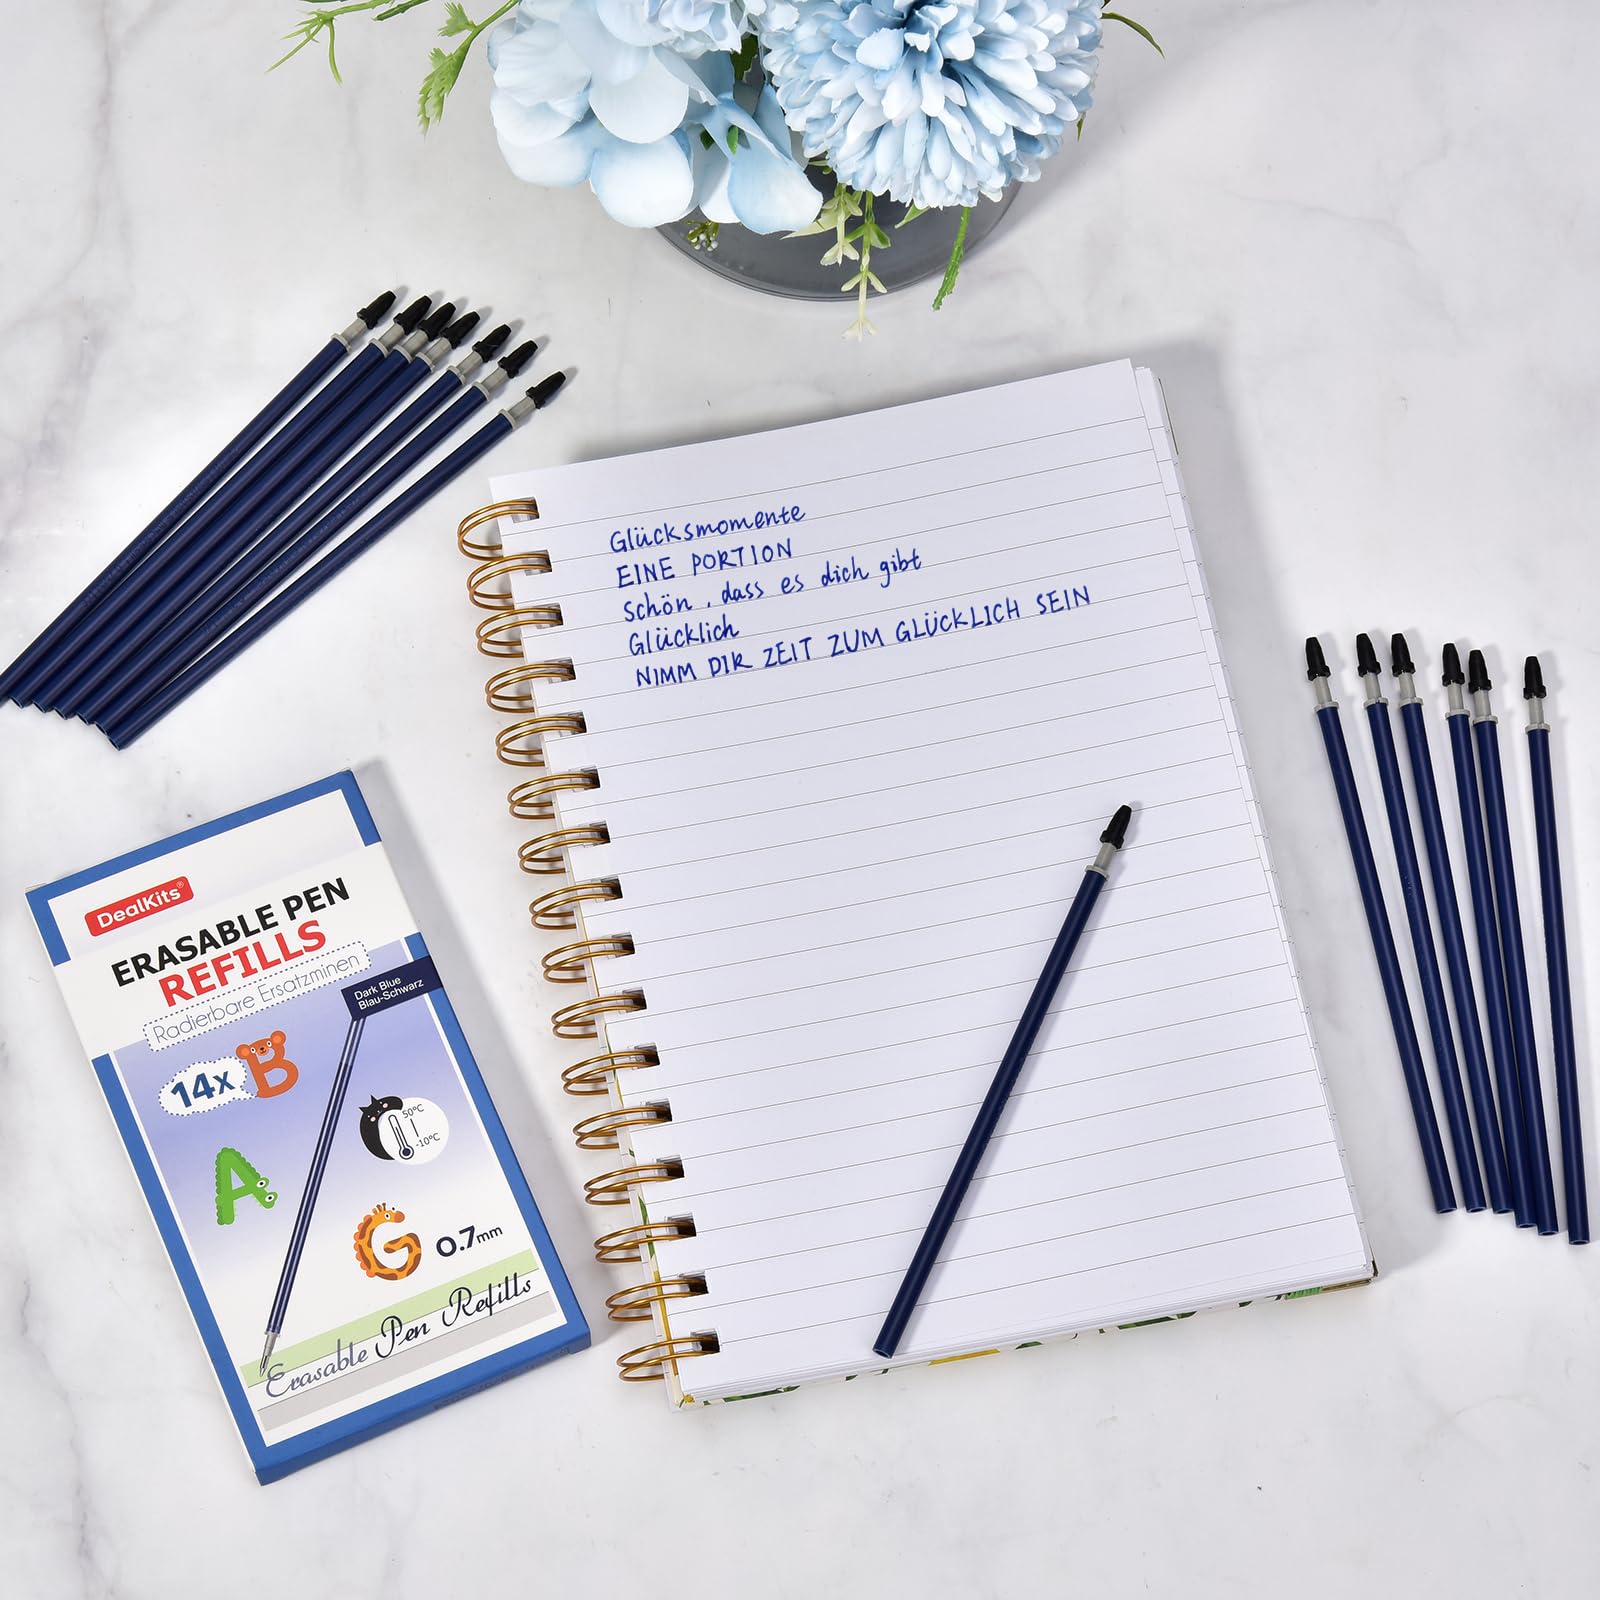 Glücksmomente
EINE PORTION
schön, dass es dich gibt
Glücklich
NIMM DIR ZEIT ZUM GLÜCKLICH SEIN
DealKits®
ERASABLE PEN
REFILLS
Radierbare Ersatzminen
Dark Blue
Blau-Schwarz
14x B
50°C
-10°C
A
G 0.7mm
Erasable Pen Refills